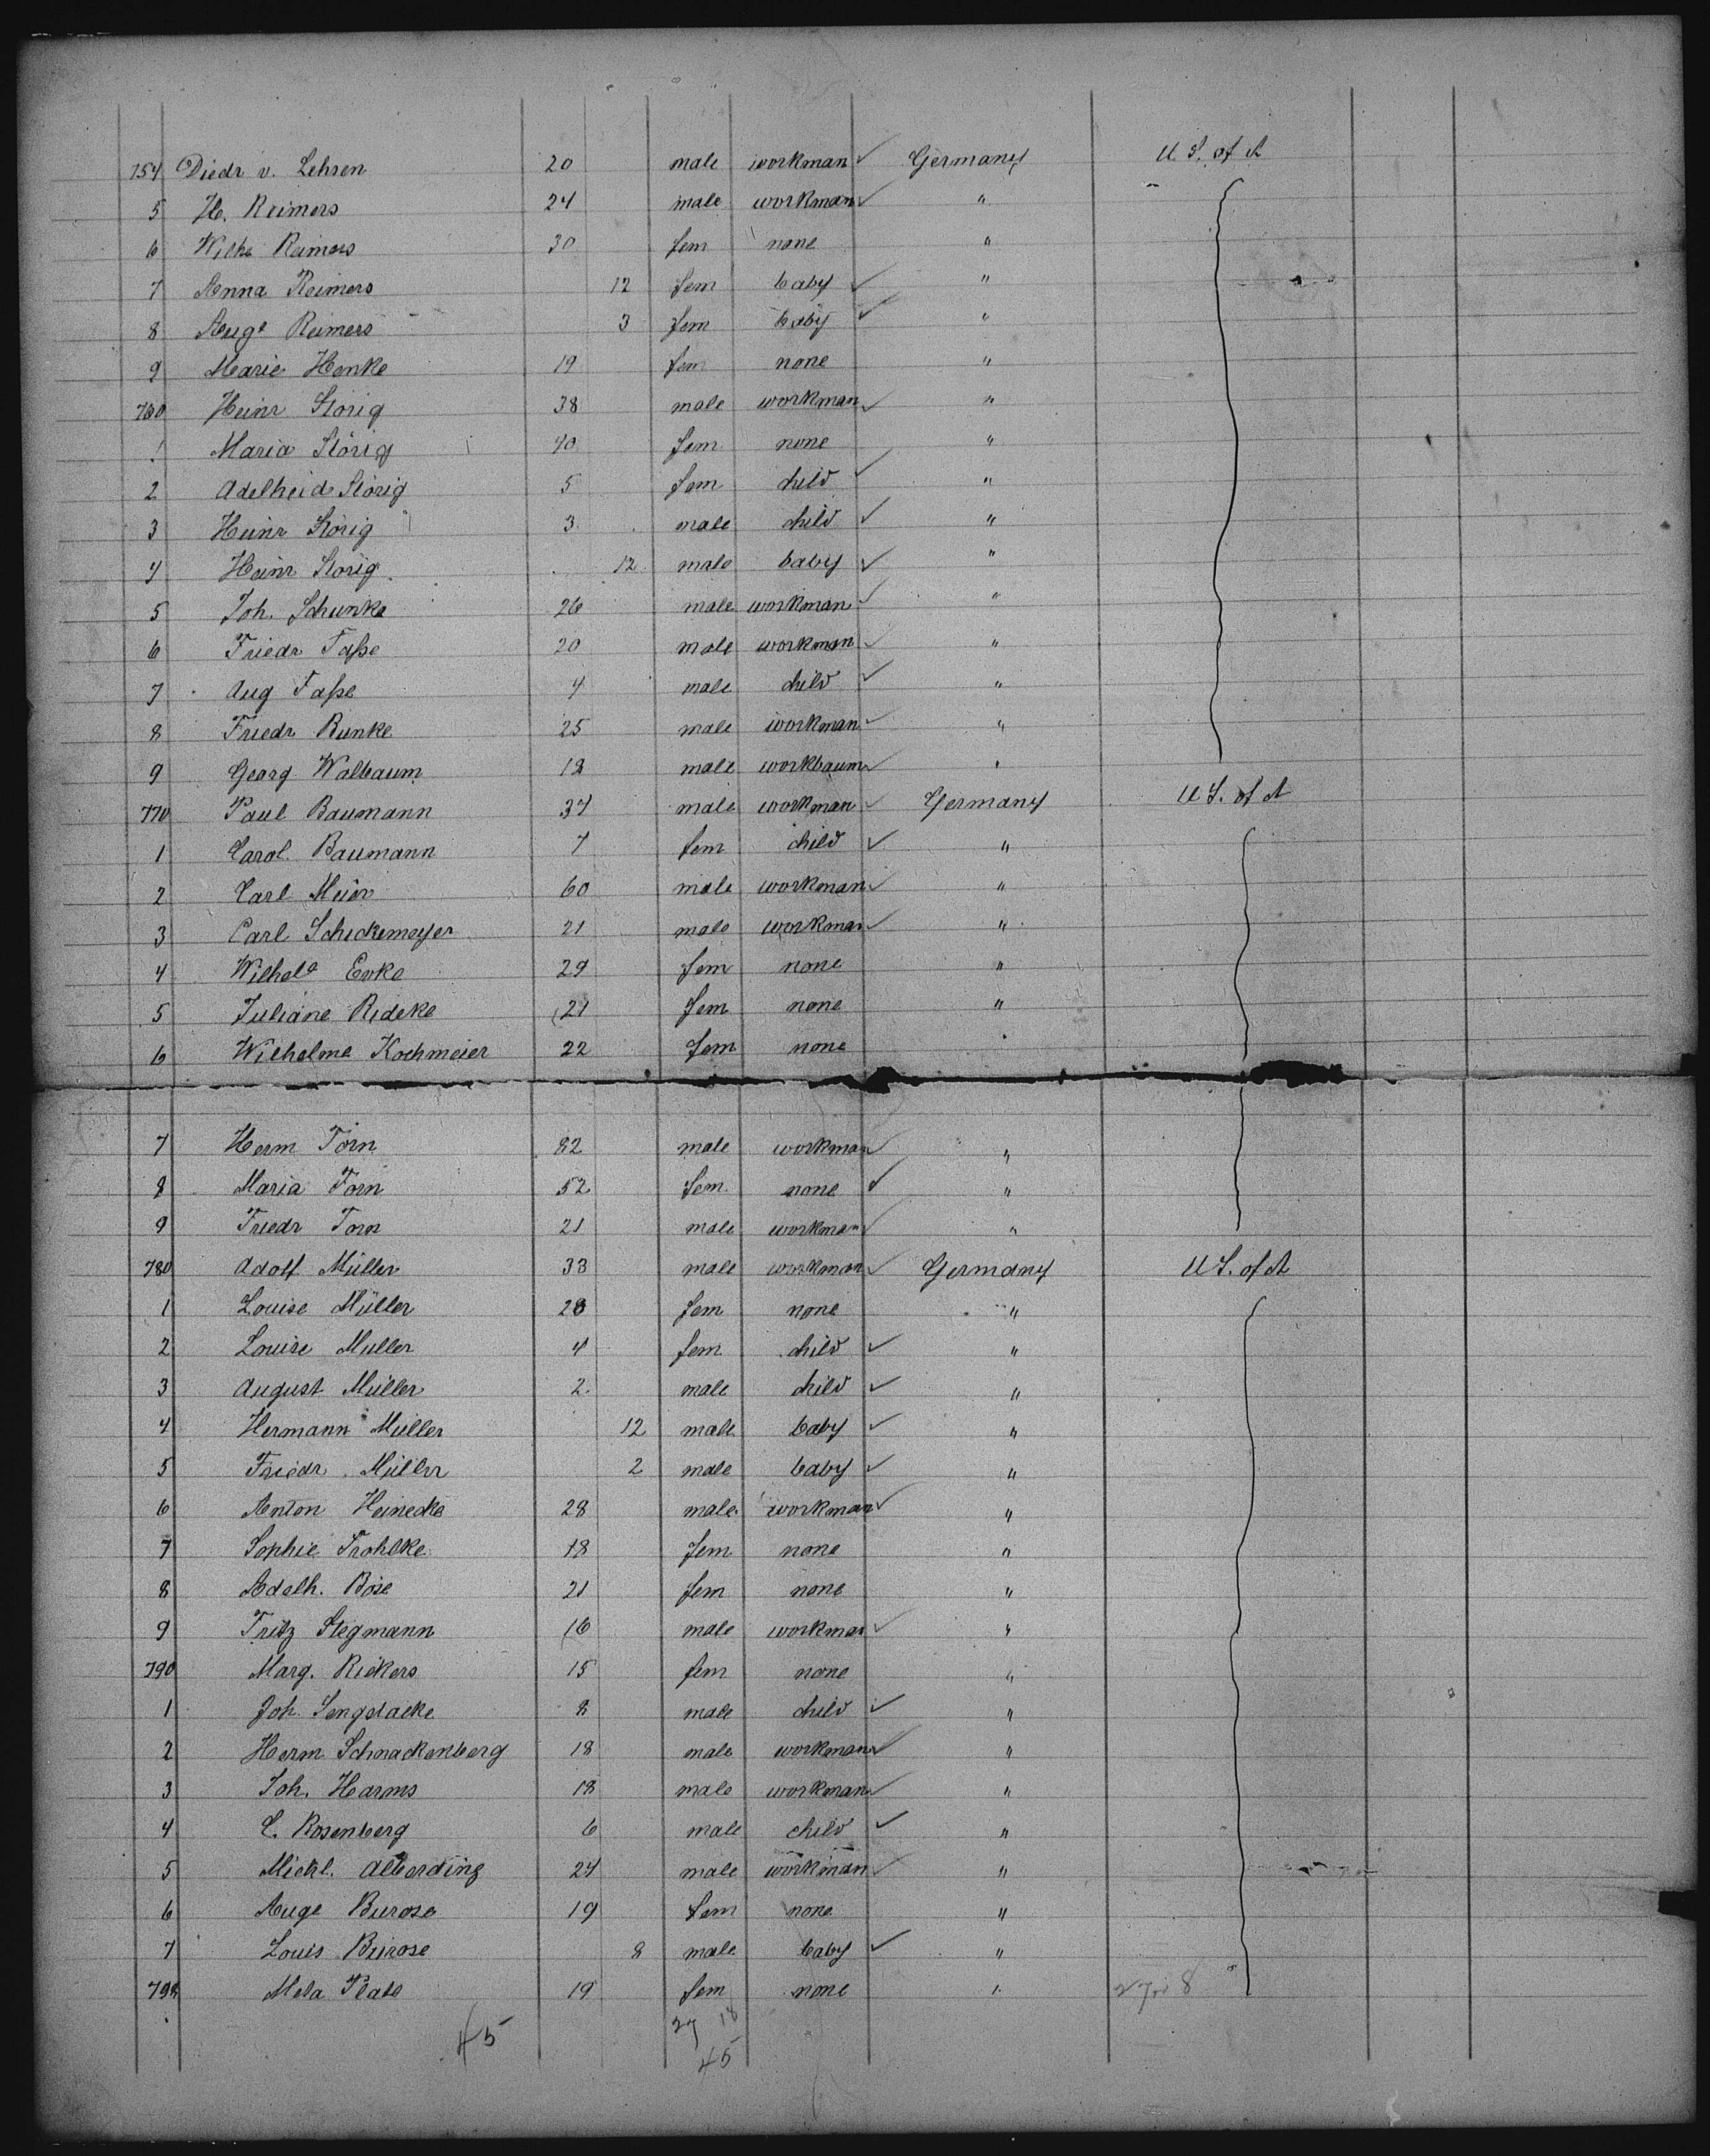 754 Diedr v. Lehsen 20 male workman ✓ Germany U. S. of A
5 H. Reimers 24 male workman ✓ "
6 Wilhe Reimers 30 fem none "
7 Anna Reimers 12 fem baby ✓ "
8 Auge Reimers 3 fem baby ✓ "
9 Marie Henke 19 fem none "
760 Heinr Storig 38 male workman ✓ "
1 Maria Störig 40 fem none "
2 Adelheid Störig 5 fem child ✓ "
3 Heinr Störig 3 male child ✓ "
4 Heinr Störig 12 male baby ✓ "
5 Joh. Schunke 26 male workman ✓ "
6 Friedr Taße 20 male workman ✓ "
7 Aug Taße 4 male child ✓ "
8 Friedr Runke 25 male workman ✓ "
9 Georg Walbaum 18 male workbaum ✓ "
770 Paul Baumann 37 male workman ✓ Germany U S. of A
1 Carol. Baumann 7 fem child ✓ "
2 Carl Meier 60 male workman ✓ "
3 Carl Schickemeyer 21 male workman ✓ "
4 Wilhele Evke 29 fem none "
5 Juliane Redeke 21 fem none "
6 Wilhelme Kochmeier 22 fem none "
7 Herm Torn 82 male workman ✓ "
8 Maria Torn 52 fem none ✓ "
9 Friedr Torn 21 male workman ✓ "
780 Adolf Müller 33 male workman ✓ Germany U S. of A
1 Louise Müller 28 fem none "
2 Louise Muller 4 fem child ✓ "
3 August Müller 2 male child ✓ "
4 Hermann Müller 12 male baby ✓ "
5 Friedr. Müller 2 male baby ✓ "
6 Anton Heinecke 28 male workman ✓ "
7 Sophie Frohlke 18 fem none "
8 Adelh. Böse 21 fem none "
9 Fritz Stegmann 16 male workman ✓ "
790 Marg. Rickers 15 fem none "
1 Joh. Sengstacke 8 male child ✓ "
2 Herm Schnackenberg 18 male workman ✓ "
3 Joh. Harms 18 male workman ✓ "
4 C. Rosenberg 6 male child ✓ "
5 Michl. Alberding 24 male workman ✓ "
6 Auge Burose 19 fem none "
7 Louis Burose 8 male baby ✓ "
798 Meta Plate 19 fem none "
45 27 18
45